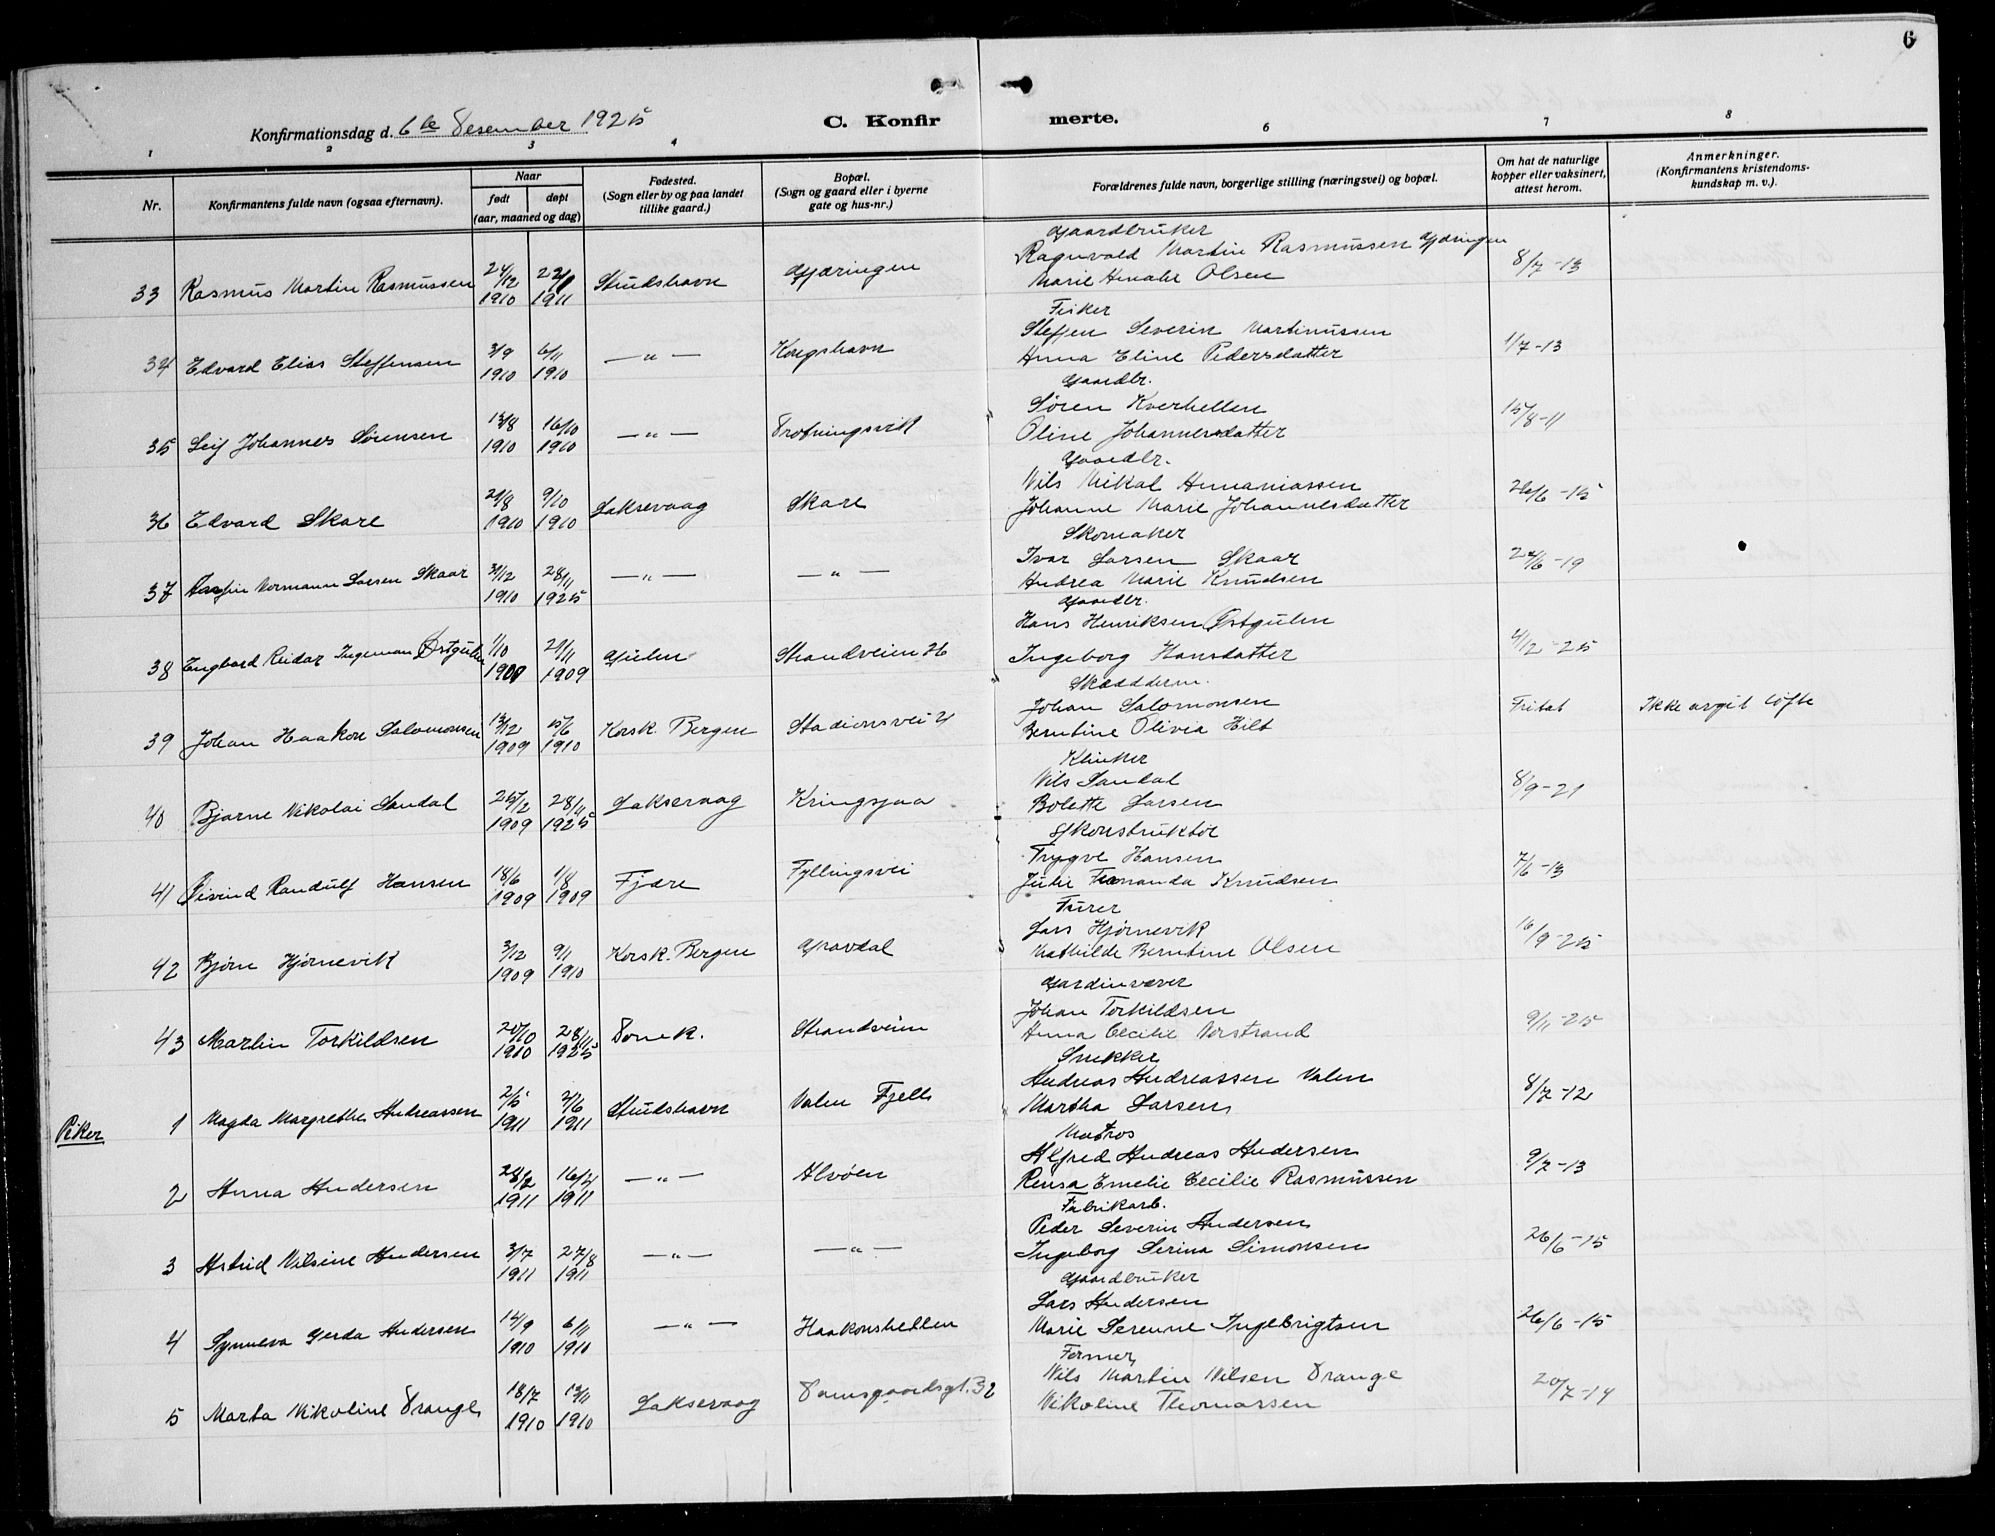 6
Konfirmationsdag d. 6te Desember 1925
C. Konfirmerte.
1 2 3 4 6 7 8
Nr.
Konfirmantens fulde navn (ogsaa efternavn).
Naar
født døpt
(aar, maaned og dag)
Fødested.
(Sogn eller by og paa landet
tillike gaard.)
Bopæl.
(Sogn og gaard eller i byerne
gate og hus-nr.)
Forældrenes fulde navn, borgerlige stilling (næringsvei) og bopæl.
Om hat de naturlige
kopper eller vaksinert,
attest herom.
Anmerkninger.
(Konfirmantens kristendoms-
kundskap m. v.).
Gaardbruker
Ragnvald Martin Rasmussen Gjæringen
33 Rasmus Martin Rasmussen 24/12 1910 1911 Studshavn Gjæringen Marie Olsen 8/7-13
Fisker
Steffen Severin Martinussen
34 Edvard Elias Steffensen 3/9 1910 6/11 1910 —"— Kongshavn Anna Eline Pedersdatter 1/7-13
Gaardbr.
Søren Kverhellen
35 Leif Johannes Sørensen 13/8 1910 16/10 1910 —"— Drotningsvik Oline Johannesdatter 15/8-11
Gaardbr.
Nils Mikal Annaniassen
36 Edvard Skare 21/8 1910 9/10 1910 Laksevaag Skare Johanne Marie Johannesdatter 26/6-15
Skomaker
Ivar Larsen Skaar
37 Normann Larsen Skaar 31/12 1910 28/11 1925 —"— —"— Andrea Marie Knudsen 24/6-19
Gaardbr.
Hans Henriksen Østgulen
38 Engbard Reidar Ingeman Østgulen 1/10 1909 21/11 1909 Gulen Strandveien 26 Ingeborg Hansdatter 4/12-25
Skædderm.
Johan Salomonsen
39 Johan Haakon Salomonsen 13/12 1909 15/6 1910 Korsk. Bergen Stadionsvei 4 Berntine Olivia Hilt Fritat Ikke avgit løfte
Klinker
Nils Sandal
40 Bjarne Nikolai Sandal 25/2 1909 28/11 1925 Laksevaag Kringsjaa Bolette Larsen 8/9-21
Skonstruktør
Trygve Hansen
41 Øivind Randulf Hansen 18/6 1909 1/8 1909 Fjære Fyllingsvei Julie Knudsen 7/6-13
Fürer
Lars Hjørnevik
42 Bjørn Hjørnevik 3/12 1909 9/1 1910 Korsk. Bergen Gravdal Mathilde Berntine Olsen 16/9-25
Gardinvæver
Johan Torkildsen
43 Martin Torkildsen 20/10 1910 28/11 1925 Domk. Strandveien Anna Cecilie Norstrand 9/11-25
Snekker
Andreas Andreassen Valen
Piker 1 Magda Margrethe Andreassen 2/5 1911 2/6 1911 Studshavn Valen Fjell Martha Larsen 8/7-12
Matros
Alfred Andreas Andersen
2 Anna Andersen 28/2 1911 16/4 1911 —"— Alvøen Rensa Emelie Cecilie Rasmussen 9/7-13
Fabrikarb.
Peder Severin Andersen
3 Astrid Nilsine Andersen 3/7 1911 27/8 1911 —"— —"— Ingeborg Serina Simonsen 26/6-15
Gaardbruker
Lars Andersen
4 Synneva Gerda Andersen 14/9 1910 6/11 1910 —"— Haakonshellen Marie Serenne Ingebrigtsen 26/6-15
Former
Nils Martin Nilsen Drange
5 Marta Nikoline Drange 18/7 1910 13/11 1910 Laksevaag Damsgaardsgt. 32 Nikoline Thomassen 20/7-14